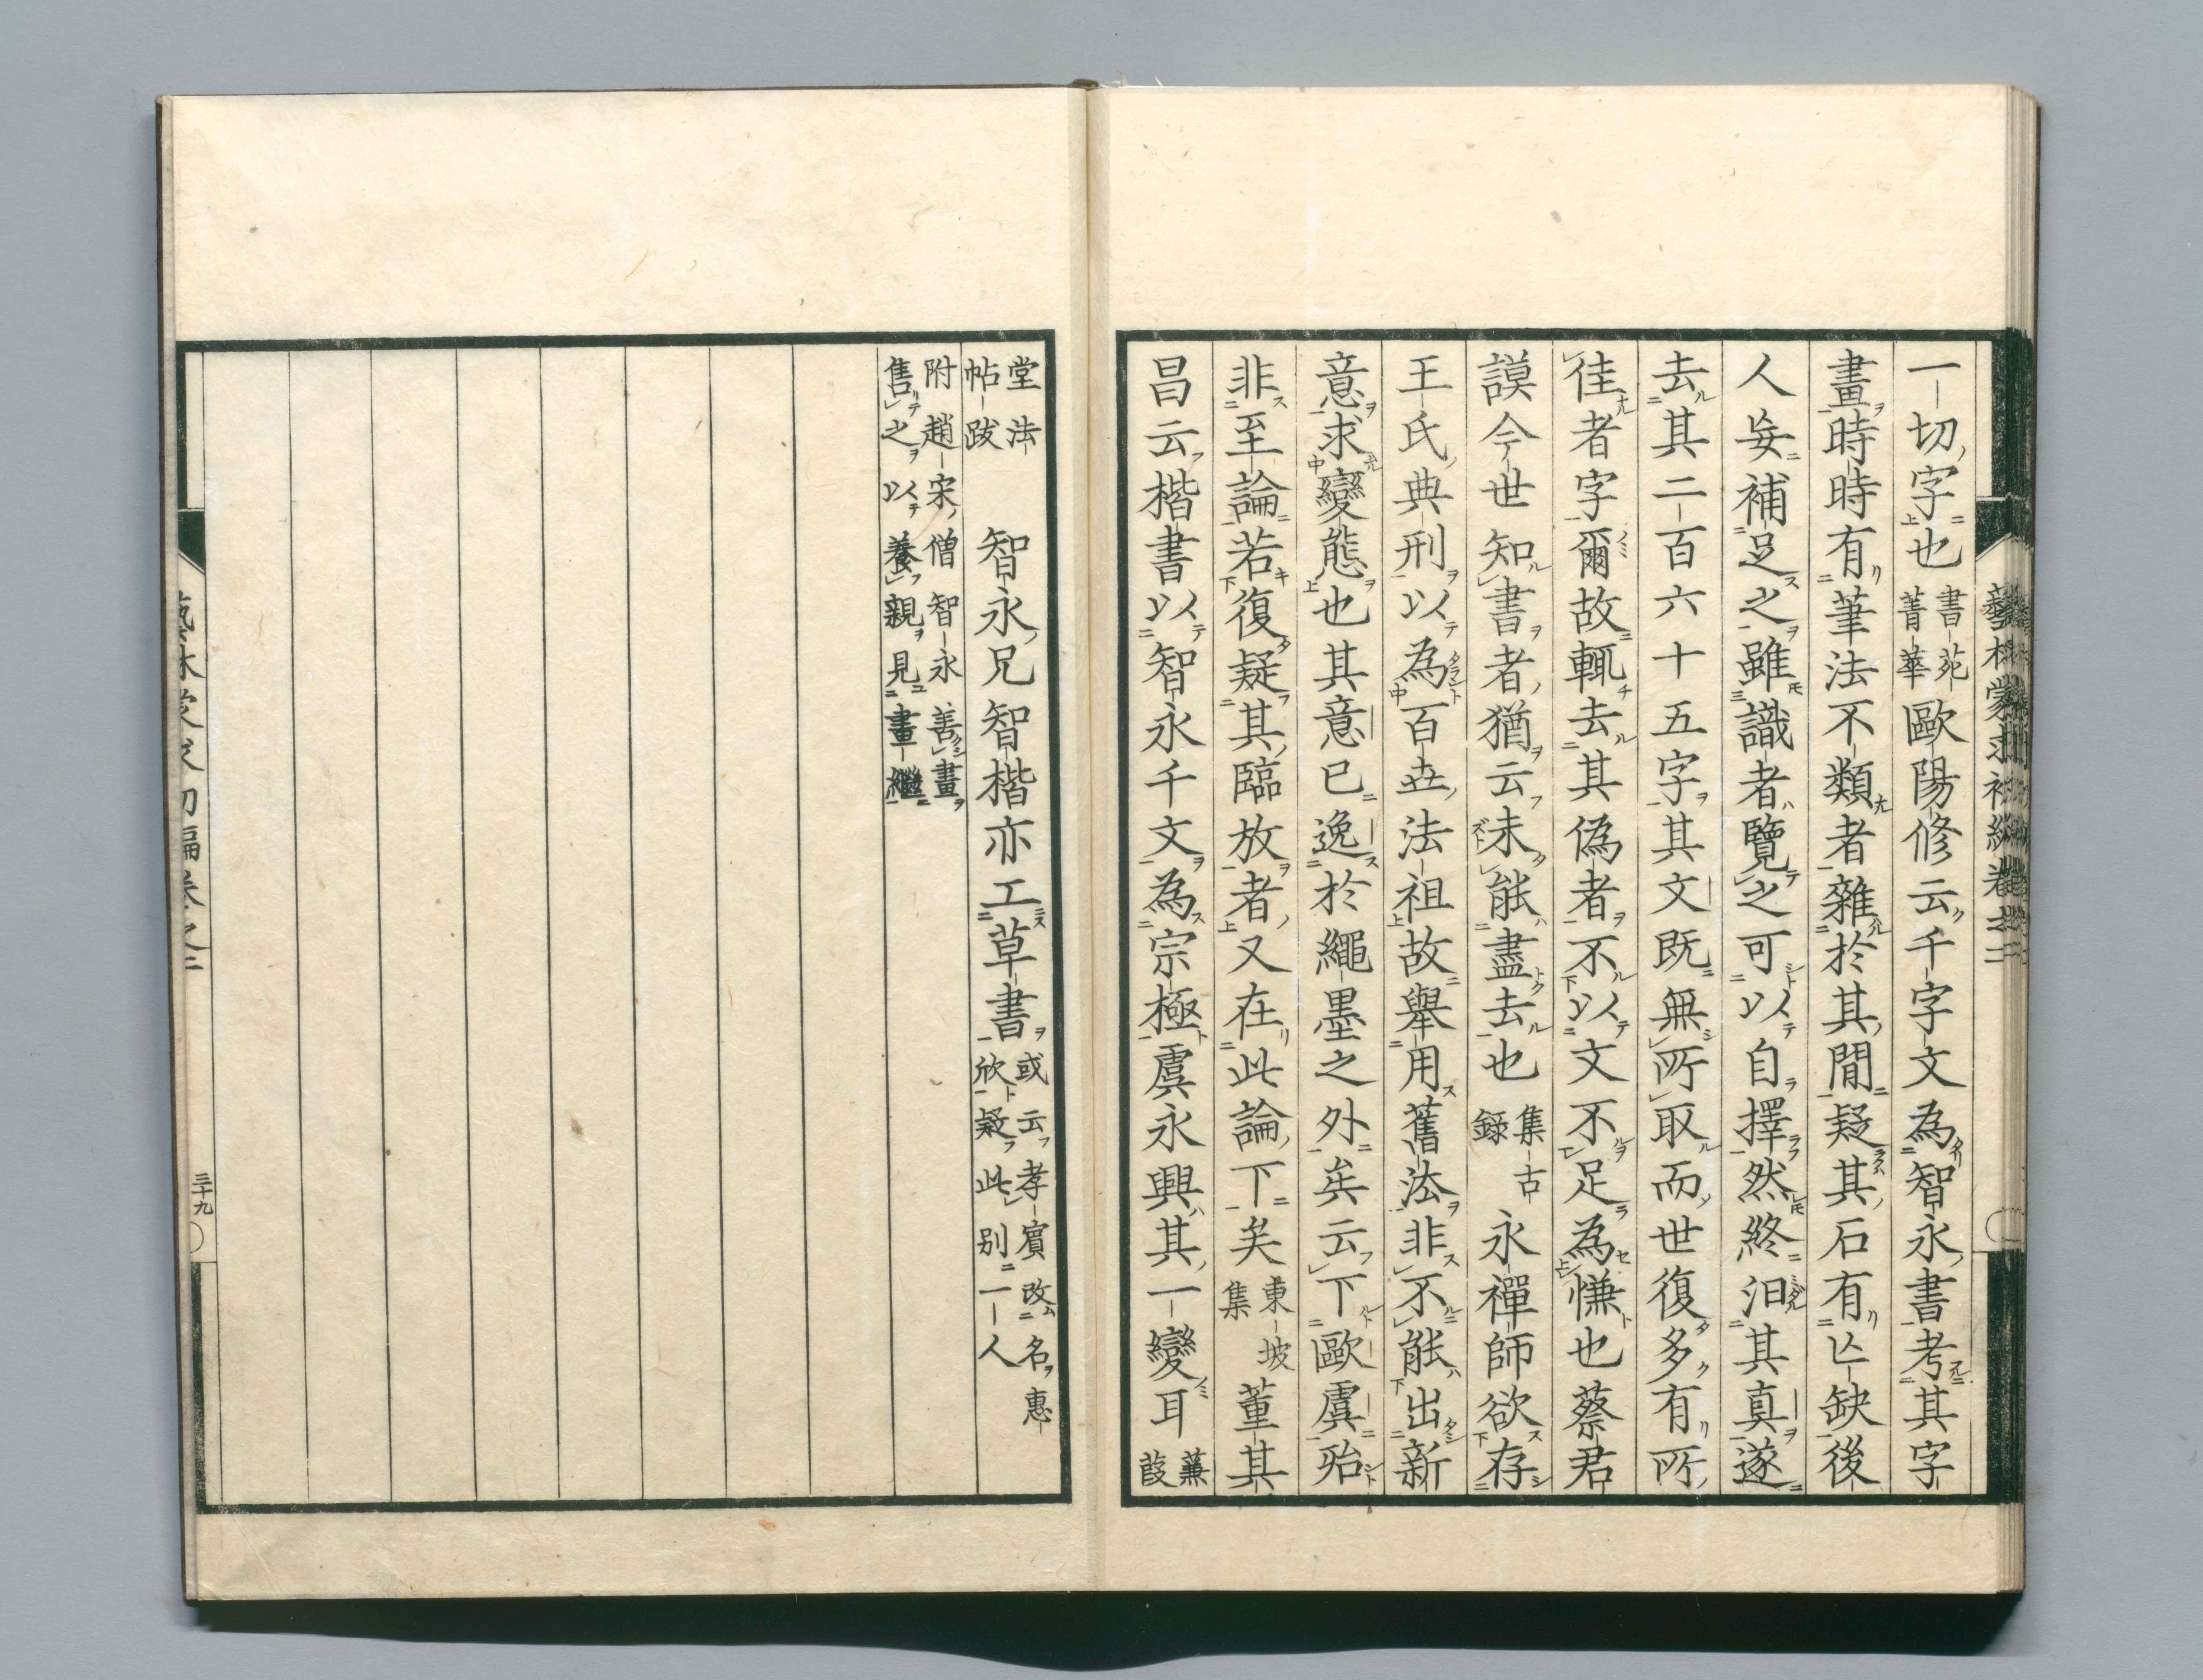 一切字也書苑菁華歐陽修云千字文為智永書考其字
畫時時有筆法不類者雜於其間疑其石有亾缺後
人妄補足之雖識者覽之可以自擇然終汨其真遂
去其二百六十五字其文既無所取而世復多有所
佳者字爾故輒去其偽者不以文不足為慊也蔡君
謨今世知書者猶云未能盡去也集古錄永禪師欲存
王氏典刑以為百世法祖故舉用舊法非不能出新
意求變態也其意已逸於繩墨之外矣云下歐虞殆
非至論若復疑其臨放者又在此論下矣東坡集董其
昌云楷書以智永千文為宗極虞永興其一變耳蒹葭
堂法帖跋智永兄智楷亦工草書或云孝賓改名惠欣疑此別一人
附趙宋僧智永善畫售之以養親見畫繼
三十九